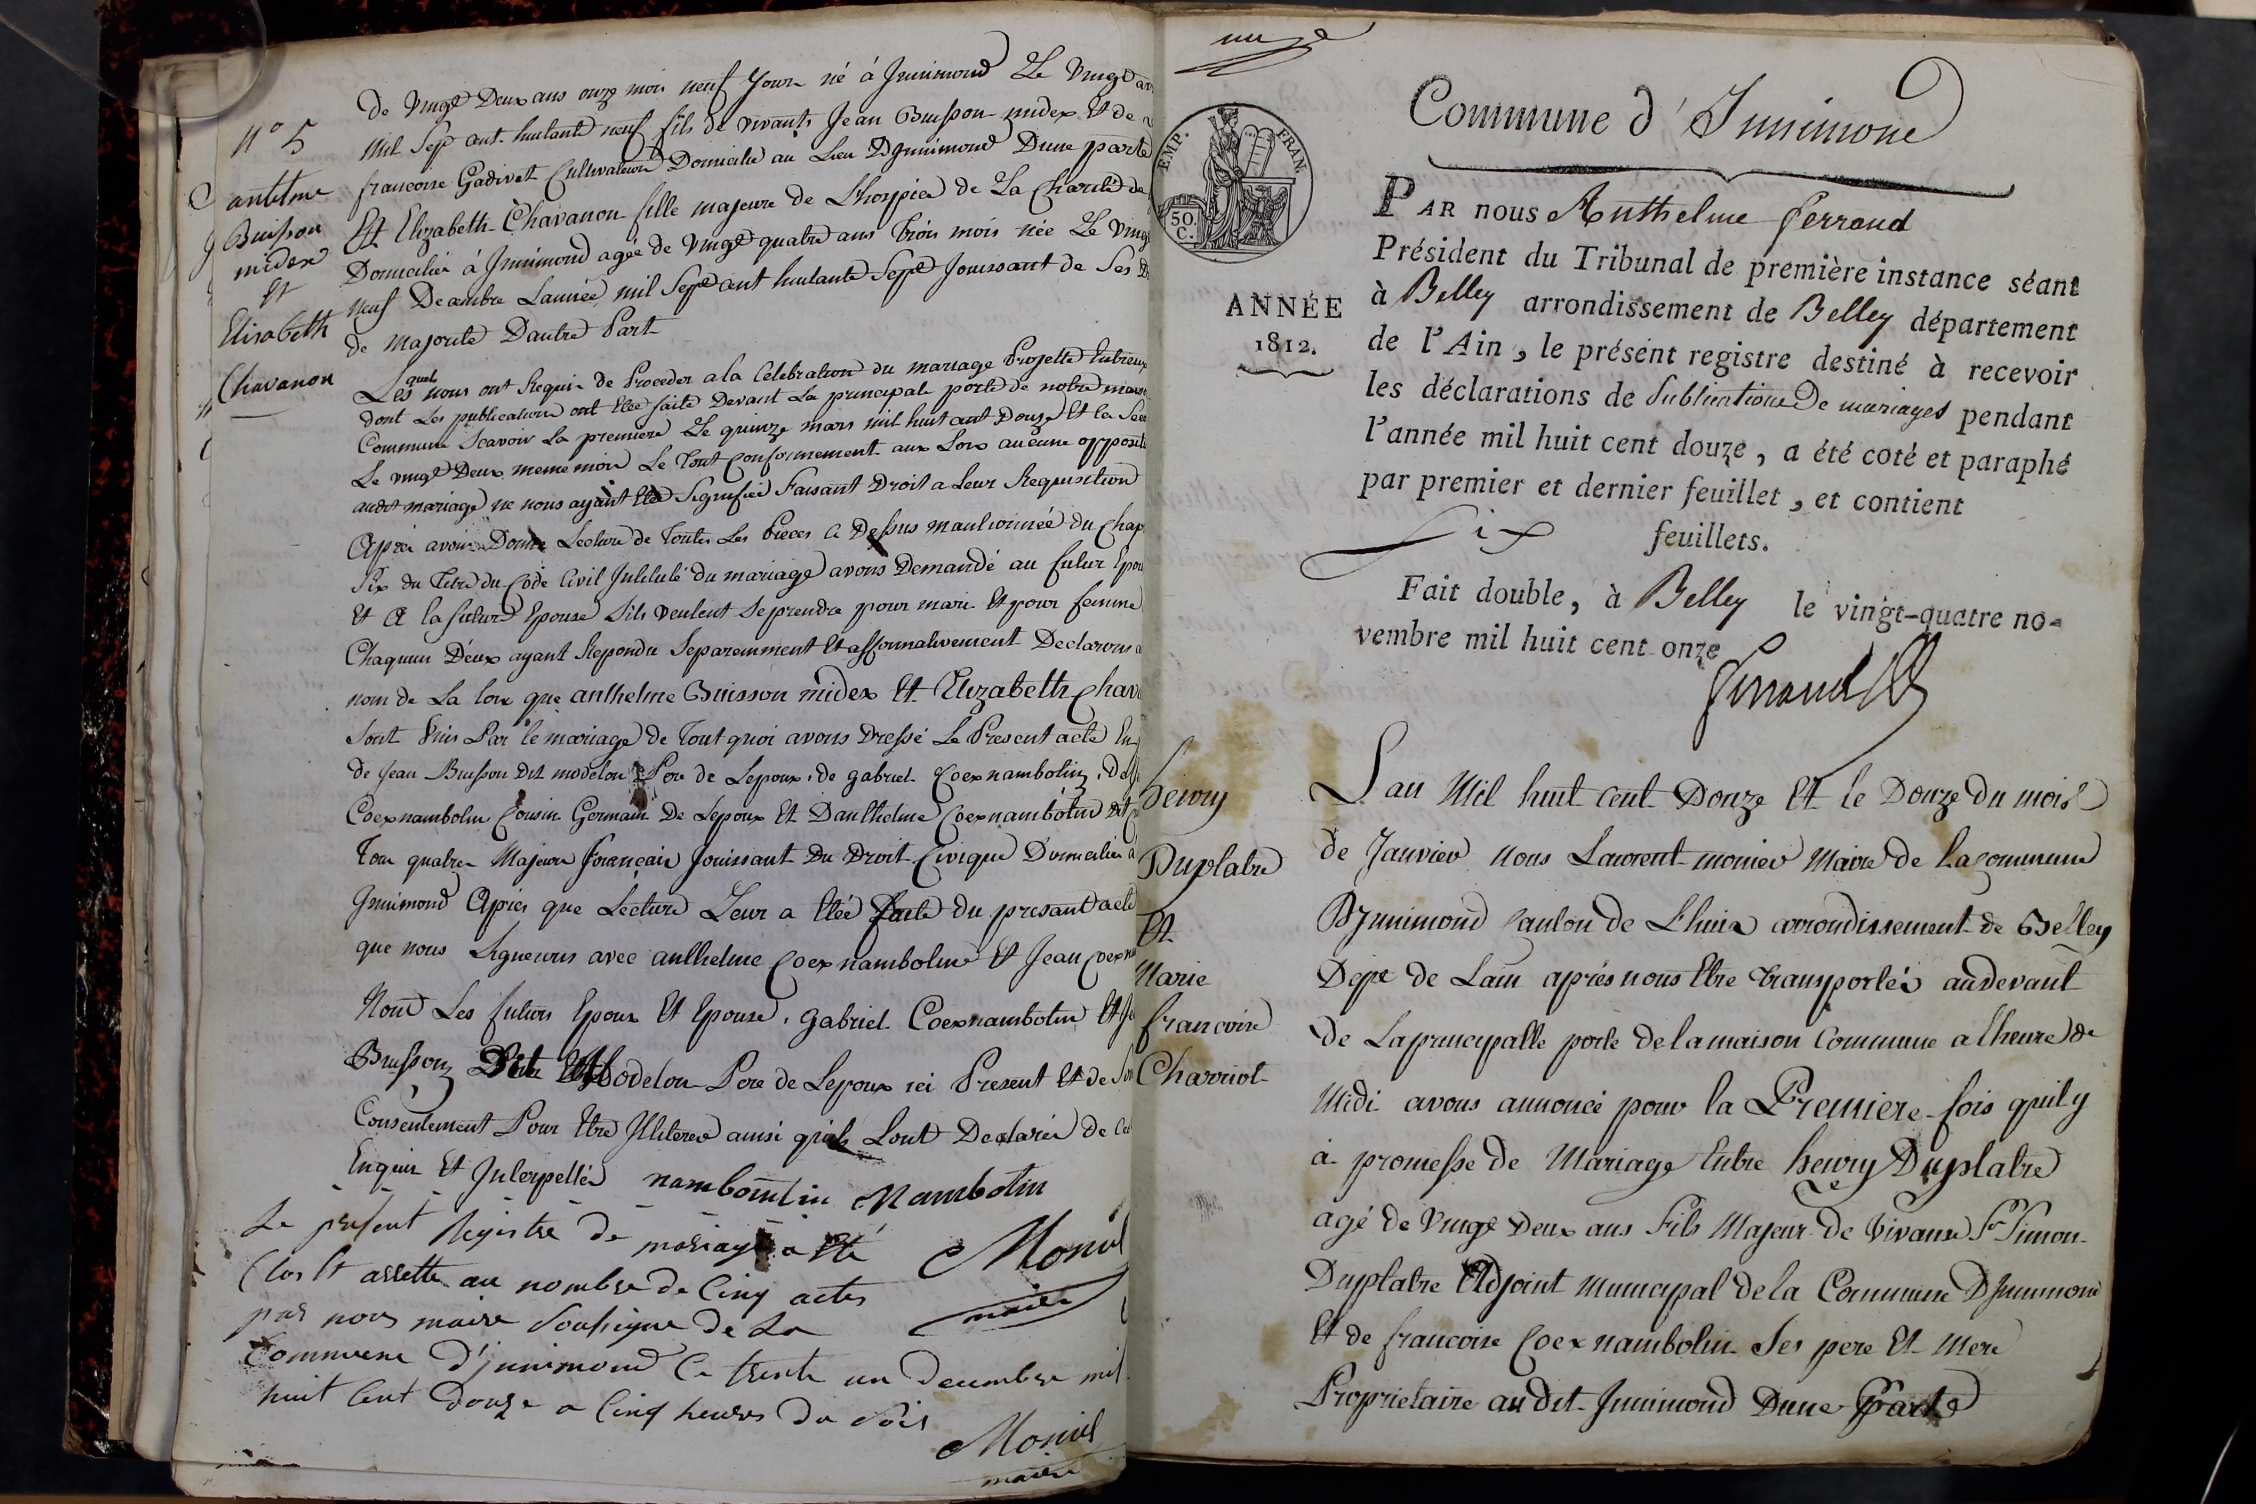 N° 5
anthelme
Buisson
midex
Et
Elisabeth
Chavanon
de vingt Deux ans onze mois neuf Jours né à Innimond Le vingt
mil Sept cent huitante neuf fils de vivants Jean Buisson midex Et de
francoise Gadivet Cultivateurs Domicilié au Lieu D'Innimond Dune parte
Et Elizabeth Chavanon fille majeure de Lhospice de La Charité de
Domicilié à Innimond agée de vingt quatre ans Trois mois née Le Vingt
neuf Decembre Lannée mil Sept cent huitante Sept Jouissant de Ses
de Majorité Dautre Part
Lesquels nous ont Requis de Proceder a la Celebration du mariage Projetté Entreux
dont Les publications ont Etée faite Devant La principale porte de notre maison
Commune Scavoir La premiere Le quinze mars mil huit cent Douze Et la
Le vingt Deux meme mois Le Tout Conformement aux Lois aucune opposition
audit mariage ne nous ayant Etée Signifiée Faisant Droit a Leur Requisition
Après avoir Donné Lecture de Toutes Les Pieces Ci Dessus mantionnée du Chap
Six du Titre du Code Civil Intitulé du mariage avons Demandé au futur Epoux
Et A la future Epouse Sils veulent Seprendre pour mari Et pour femme
Chaqun D'eux ayant Repondu Separemment Et affirmativement Declarons
nom de La loix que anthelme Buisson midex Et Elizabeth
Sont Unis Par le mariage de Tout quoi avons Dressé Le Present acte
de Jean Buisson Dit modelon Pere de Lepoux, de gabriel Coex nambotin,
Coexnambotin Cousin Germain De Lepoux Et Danthelme Coexnambotin dit
Tous quatre Majeurs français Jouissant Du Droit Civique Domicilié a
Innimond Après que Lecture Leur a Etée faite du presant acte
que nous Signerons avec anthelme Coex nambotin Et Jean
Nond Les futurs Epoux Et Epouse, gabriel Coexnambotin Et
Buisson Dit Modelon Pere de Lepoux ici Present Et de Son
Consentement Pour Etre Illiterés ainsi quils Sont Declarés de Ce
Enquis Et Interpellés nambontin Nambotin
Le present Registre de mariage a Eté
Clos Et arretté au nombre de Cinq actes
par nous maire Soussigné De La
Commune d'Innimond Ce trente un decembre mil
huit Cent Douze a Cinq heures Du Soir
Monié
maire
Monié
maire
Commune d'Innimond
EMP. FRAN.
50.
C.
ANNÉE
1812.
PAR nous Anthelme ferrand
Président du Tribunal de première instance séant
à Belley arrondissement de Belley département
de l'Ain, le présent registre destiné à recevoir
les déclarations de Publications De mariages pendant
l'année mil huit cent douze, a été coté et paraphé
par premier et dernier feuillet, et contient
Six feuillets.
Fait double, à Belley le vingt-quatre no-
vembre mil huit cent onze
Ferrand
henry
Duplatre
Et
Marie
francoise
Charriot
L'an Mil huit cent Douze Et le Douze du mois
de Janvier nous Laurent monier Maire de La commune
D'Innimond Canton de Lhuis arrondissement de Belley
Dept de Lain après nous Etre transportés audevant
de Laprincipalle porte de la maison Commune a lheure de
Midi avons annoncé pour la Premiere fois quil y
à promesse de Mariage Entre henry Duplatre
agé de vingt Deux ans Fils Majeur de Vivans Sr Simon
Duplatre Adjoint municipal de la Commune D'Innimond
Et de francoise Coex nambotin Ses pere Et Mere
Proprietaire au dit Innimond Dune Parte